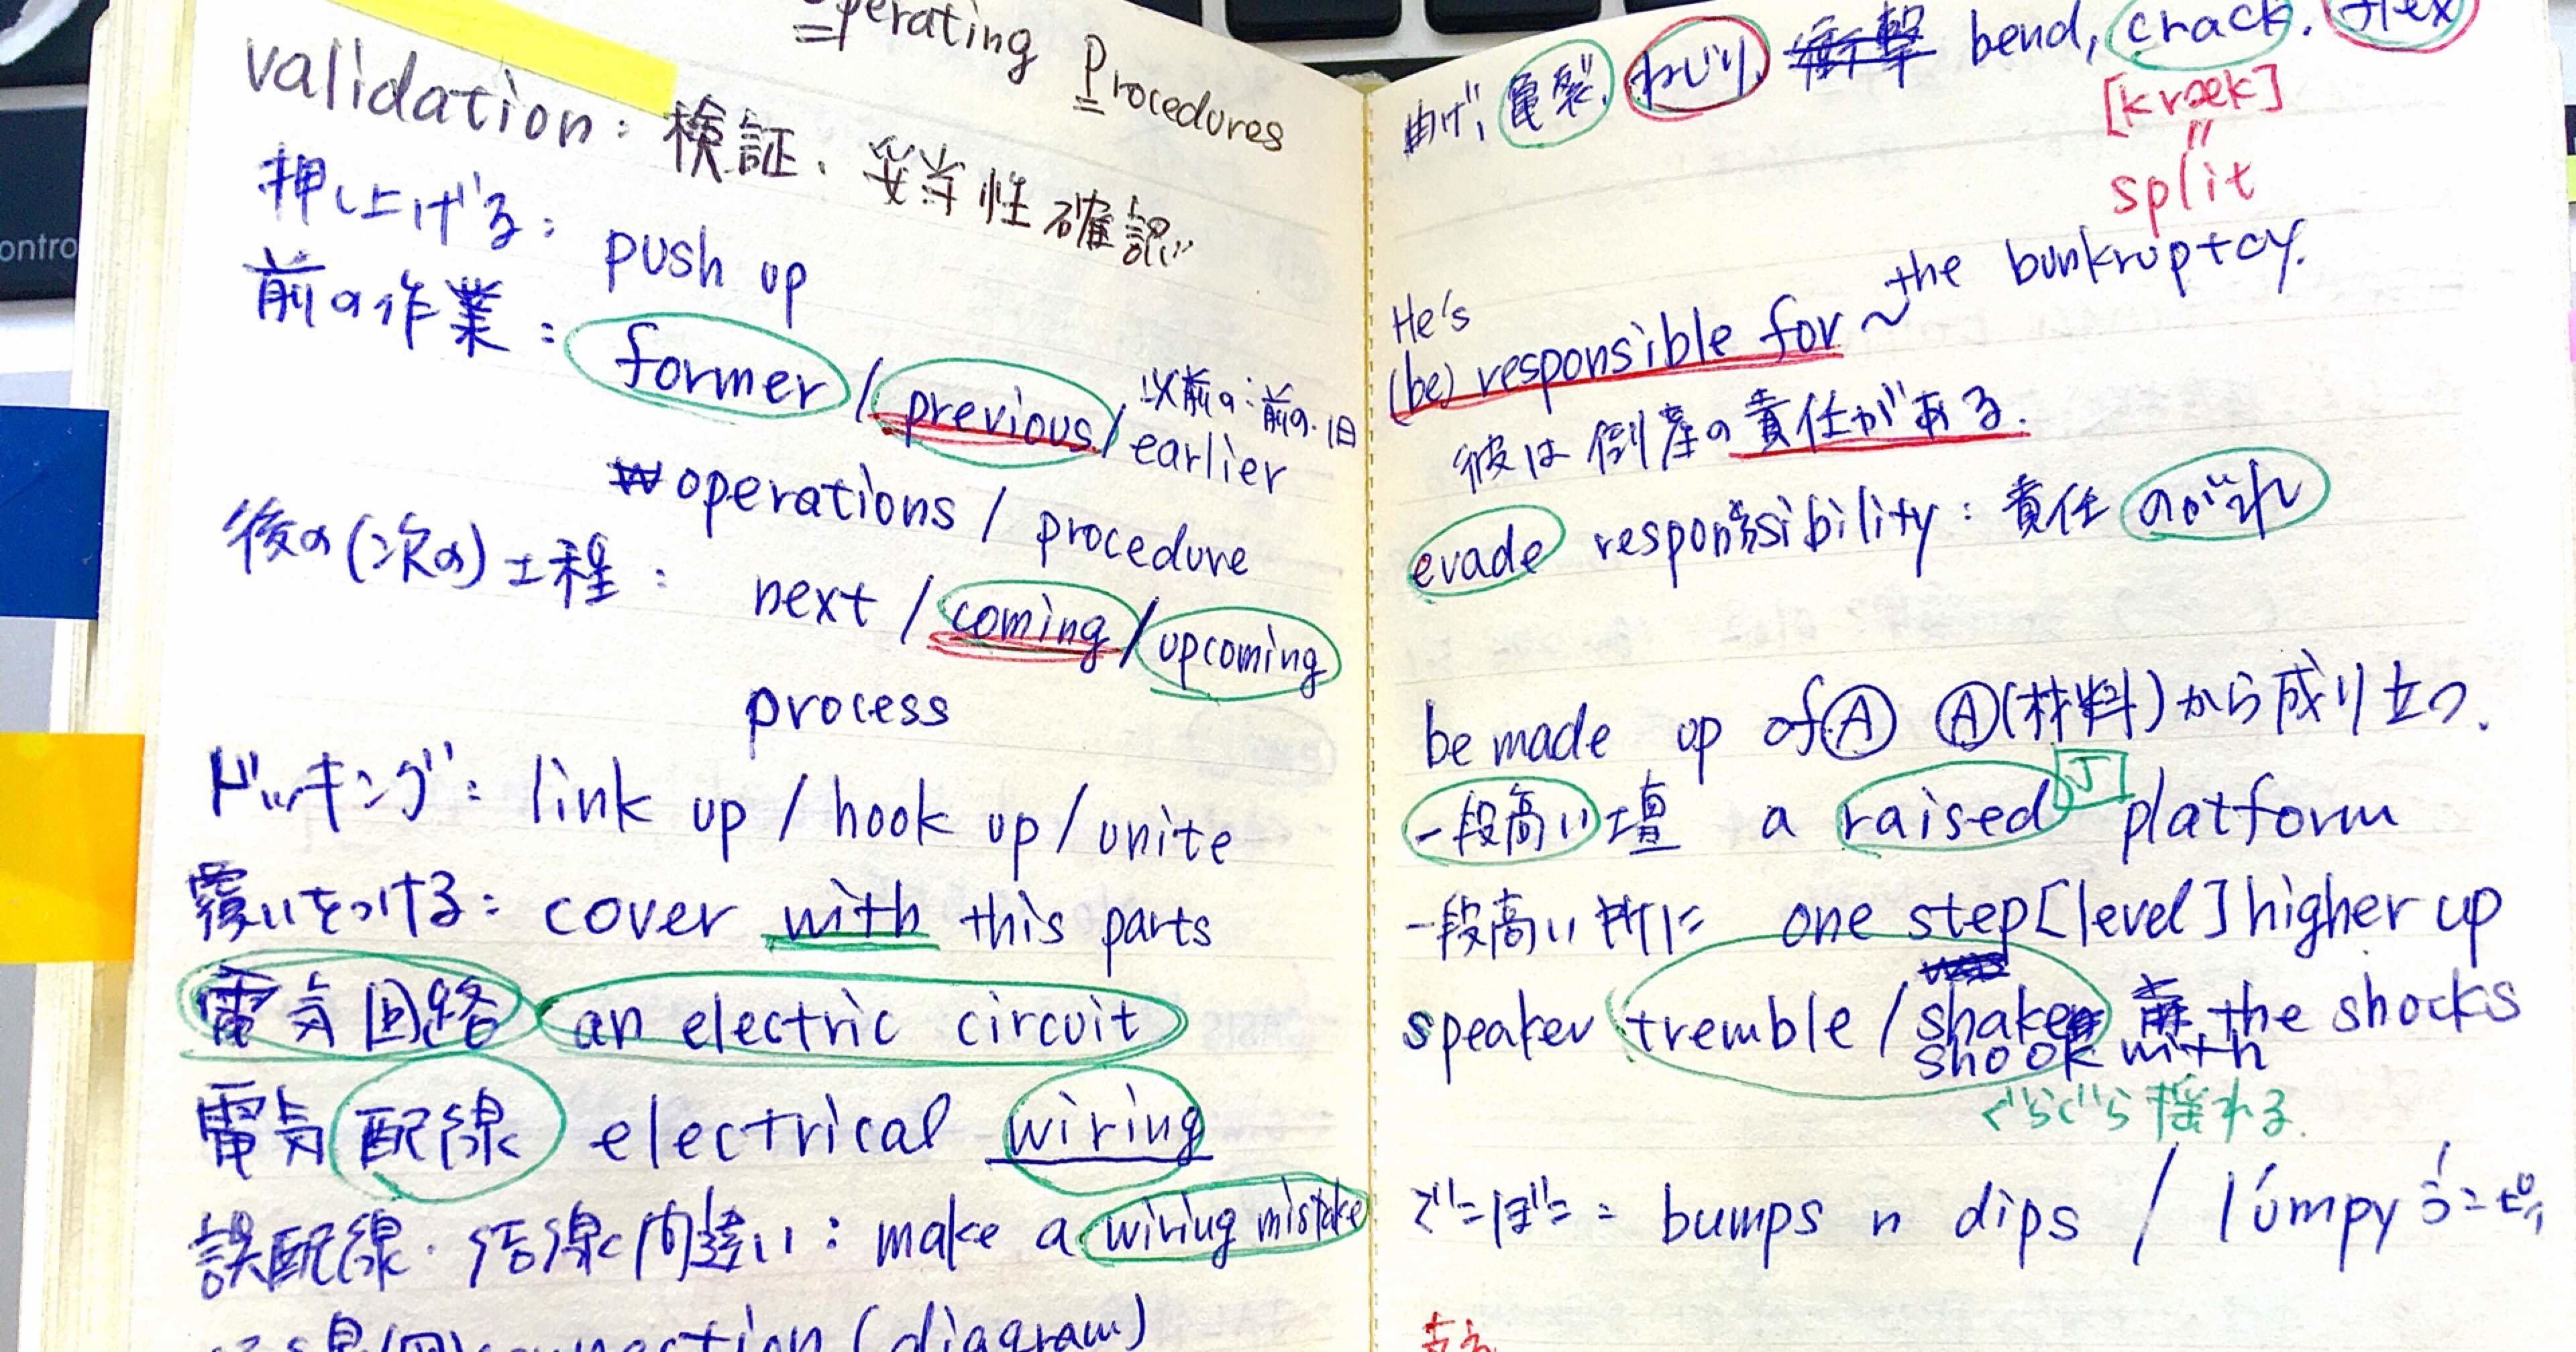 Operating Procedures
validation: 検証、妥当性確認
押し上げる: push up
前の作業: former / previous / earlier
以前の・前の・旧
operations / procedure
後の(次の)工程: next / coming / upcoming
process
ドッキング: link up / hook up / unite
覆いをつける: cover with this parts
電気回路 an electric circuit
電気配線 electrical wiring
誤配線・結線間違い: make a wiring mistake
(diagram)
曲げ, 亀裂, ねじり, 衝撃 bend, crack, flex
[kræk]
"
split
He's
(be) responsible for ~ the bunkruptcy.
彼は倒産の責任がある.
evade responsibility: 責任のがれ
be made up of Ⓐ Ⓐ(材料)から成り立つ.
一段高い壇 a raised platform
一段高い所に one step [level] higher up
speaker tremble / shake the shocks
shook with
ぐらぐら揺れる.
でこぼこ: bumps n dips / lúmpy